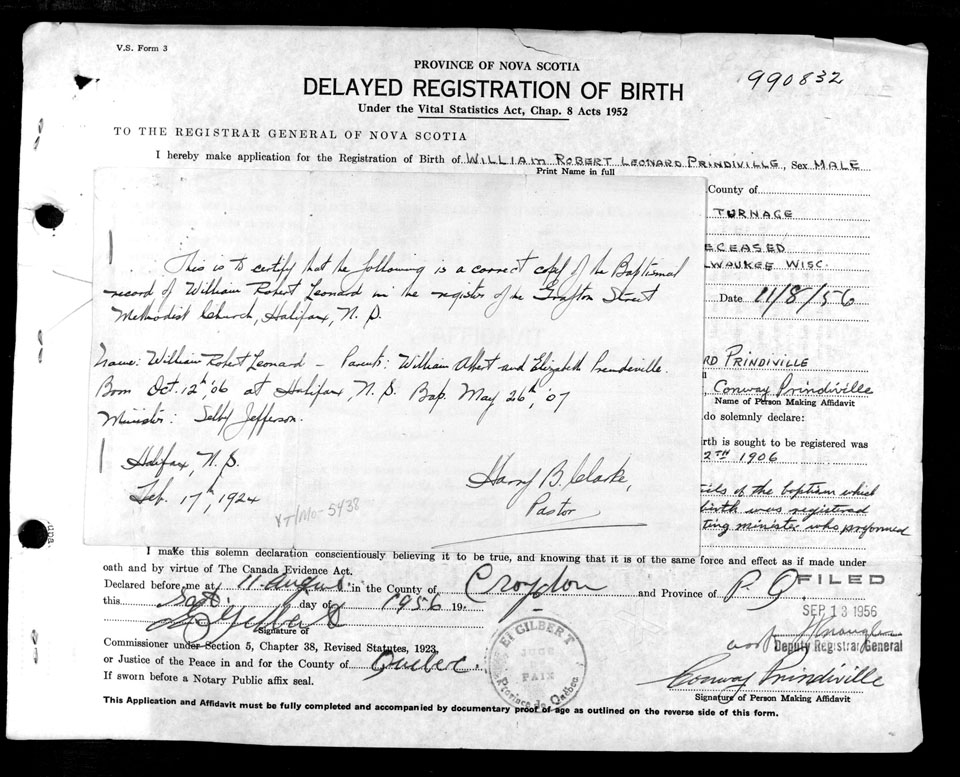 V.S. Form 3
PROVINCE OF NOVA SCOTIA
990832
DELAYED REGISTRATION OF BIRTH
Under the Vital Statistics Act, Chap. 8 Acts 1952
TO THE REGISTRAR GENERAL OF NOVA SCOTIA
I hereby make application for the Registration of Birth of WILLIAM ROBERT LEONARD PRINDIVILLE, Sex MALE
Print Name in full
County of
TURNAGE
ECEASED
LWAUKEE WISC.
Date 11/8/56
This is to certify that the following is a correct copy of the Baptismal
record of William Robert Leonard in the register of the Grafton Street
Methodist Church, Halifax, N.S.
Name: William Robert Leonard – Parents: William Albert and Elizabeth Prendiville.
Born Oct. 12th, '06 at Halifax N.S. Bap. May 26th, '07
Minister: Selby Jefferson.
Halifax, N.S.
Feb. 17th, 1924
Harry B. Clarke,
Pastor
5438
RD PRINDIVILLE
, Conway Prindiville
Name of Person Making Affidavit
do solemnly declare:
rth is sought to be registered was
2TH 1906
ils of the baptism which
birth was registered
ting minister who preformed
I make this solemn declaration conscientiously believing it to be true, and knowing that it is of the same force and effect as if made under
oath and by virtue of The Canada Evidence Act.
Declared before me at 11 August in the County of Croydon and Province of P.Q.
FILED
this Sept day of 1956 19
SEP 13 1956
Signature of
Deputy Registrar General
Commissioner under Section 5, Chapter 38, Revised Statutes, 1923,
or Justice of the Peace in and for the County of Quebec.
If sworn before a Notary Public affix seal.
GILBERT
JUGE
PAIX
Province de Québec
Conway Prindiville
Signature of Person Making Affidavit
This Application and Affidavit must be fully completed and accompanied by documentary proof of age as outlined on the reverse side of this form.